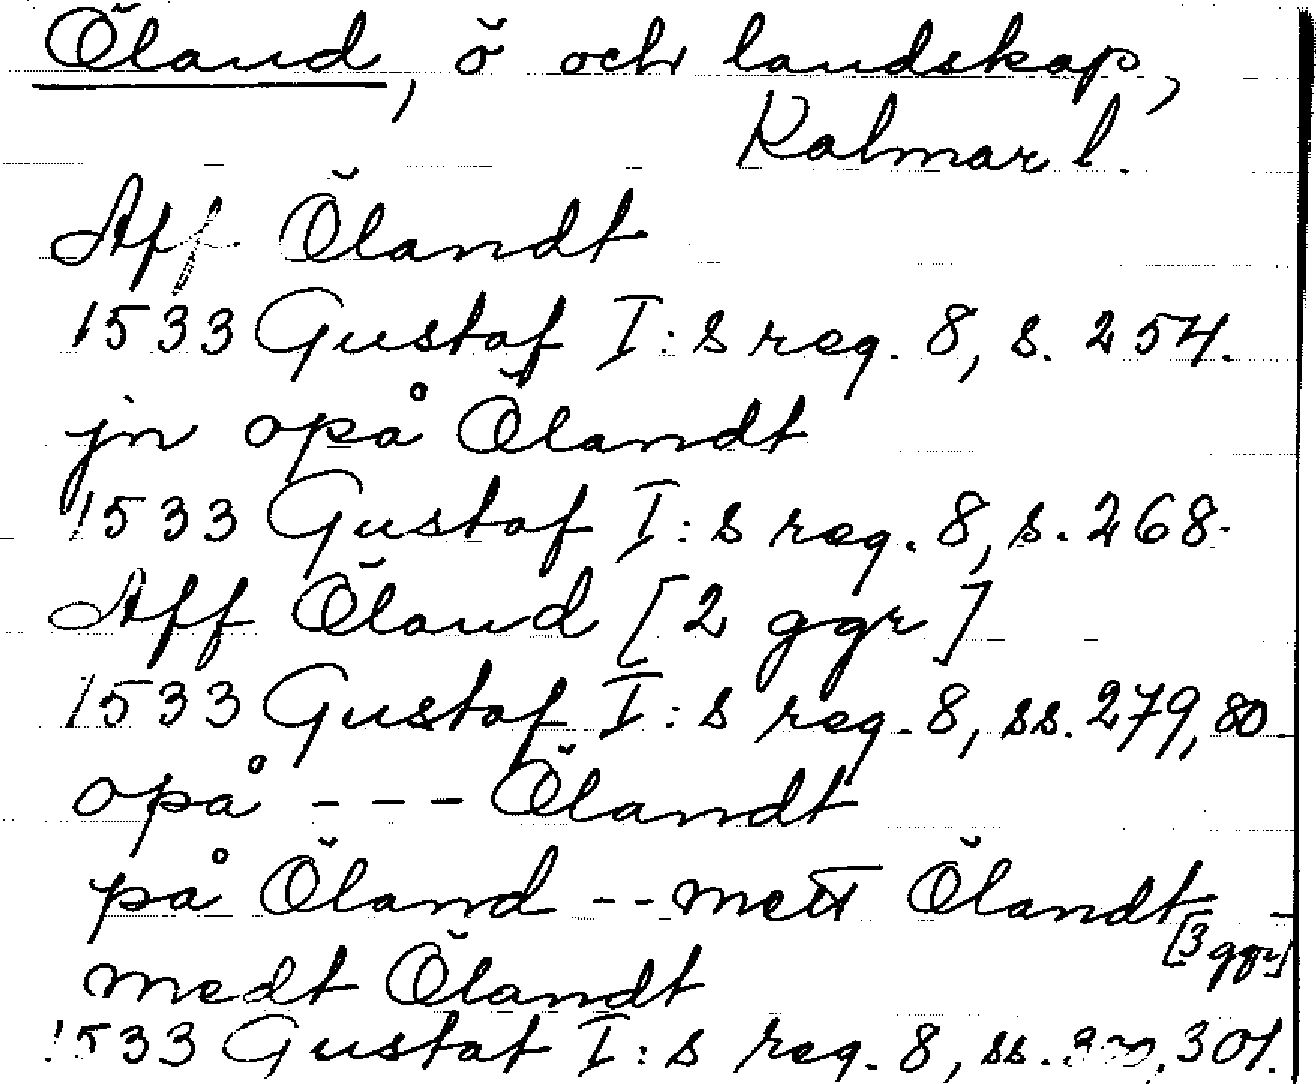 Öland, ö och landskap,
Kalmar l.
Aff Ölandt
1533 Gustaf I:s reg. 8, s. 254.
jn opå Ölandt
1533 Gustaf I:s reg. 8, s. 268.
Aff Öland [2 ggr]
1533 Gustaf I:s reg. 8, ss. 279, 80
opå --- Ölandt
på Öland -- mett Ölandt
[3 ggr]
medt Ölandt
1533 Gustaf I:s reg. 8, ss. 300, 301.